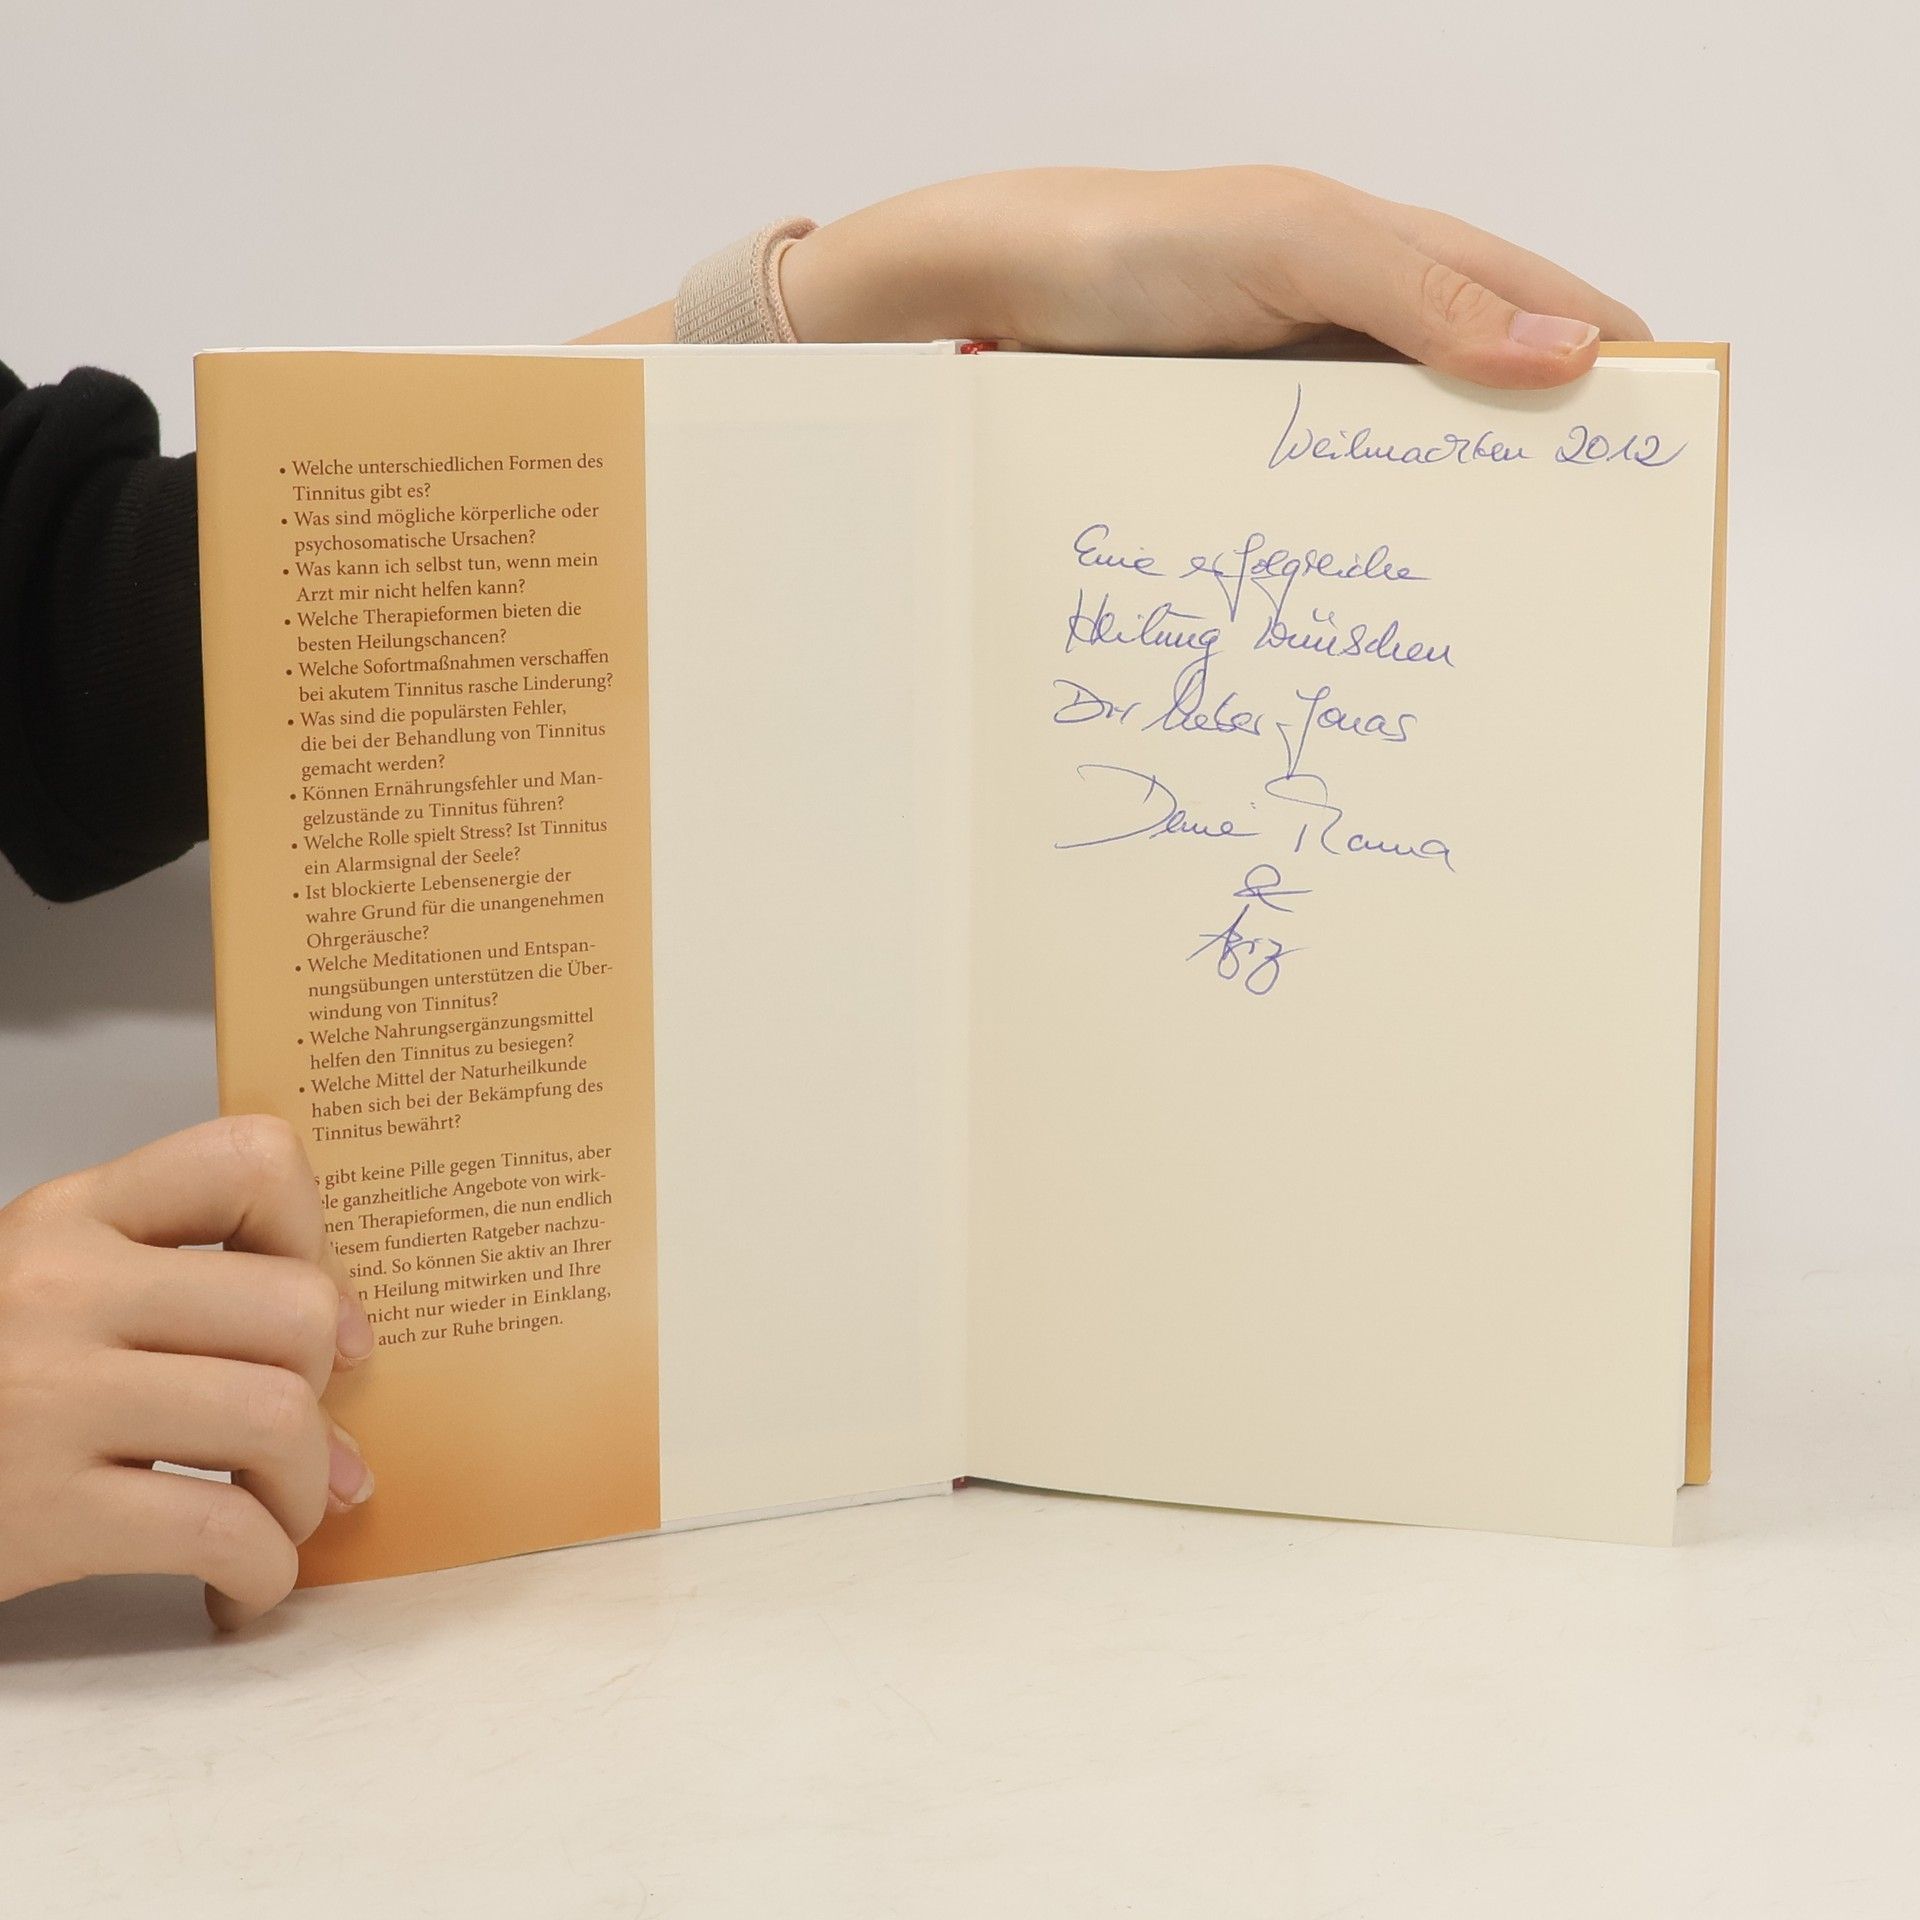 • Welche unterschiedlichen Formen des
Tinnitus gibt es?
• Was sind mögliche körperliche oder
psychosomatische Ursachen?
• Was kann ich selbst tun, wenn mein
Arzt mir nicht helfen kann?
• Welche Therapieformen bieten die
besten Heilungschancen?
• Welche Sofortmaßnahmen verschaffen
bei akutem Tinnitus rasche Linderung?
• Was sind die populärsten Fehler,
die bei der Behandlung von Tinnitus
gemacht werden?
• Können Ernährungsfehler und Man-
gelzustände zu Tinnitus führen?
• Welche Rolle spielt Stress? Ist Tinnitus
ein Alarmsignal der Seele?
• Ist blockierte Lebensenergie der
wahre Grund für die unangenehmen
Ohrgeräusche?
• Welche Meditationen und Entspan-
nungsübungen unterstützen die Über-
windung von Tinnitus?
• Welche Nahrungsergänzungsmittel
helfen den Tinnitus zu besiegen?
• Welche Mittel der Naturheilkunde
haben sich bei der Bekämpfung des
Tinnitus bewährt?
s gibt keine Pille gegen Tinnitus, aber
le ganzheitliche Angebote von wirk-
men Therapieformen, die nun endlich
iesem fundierten Ratgeber nachzu-
sind. So können Sie aktiv an Ihrer
n Heilung mitwirken und Ihre
nicht nur wieder in Einklang,
auch zur Ruhe bringen.
Weihnachten 2012
Eine erfolgreiche
Heilung wünschen
Dir lieber Jonas
Deine Mama
&